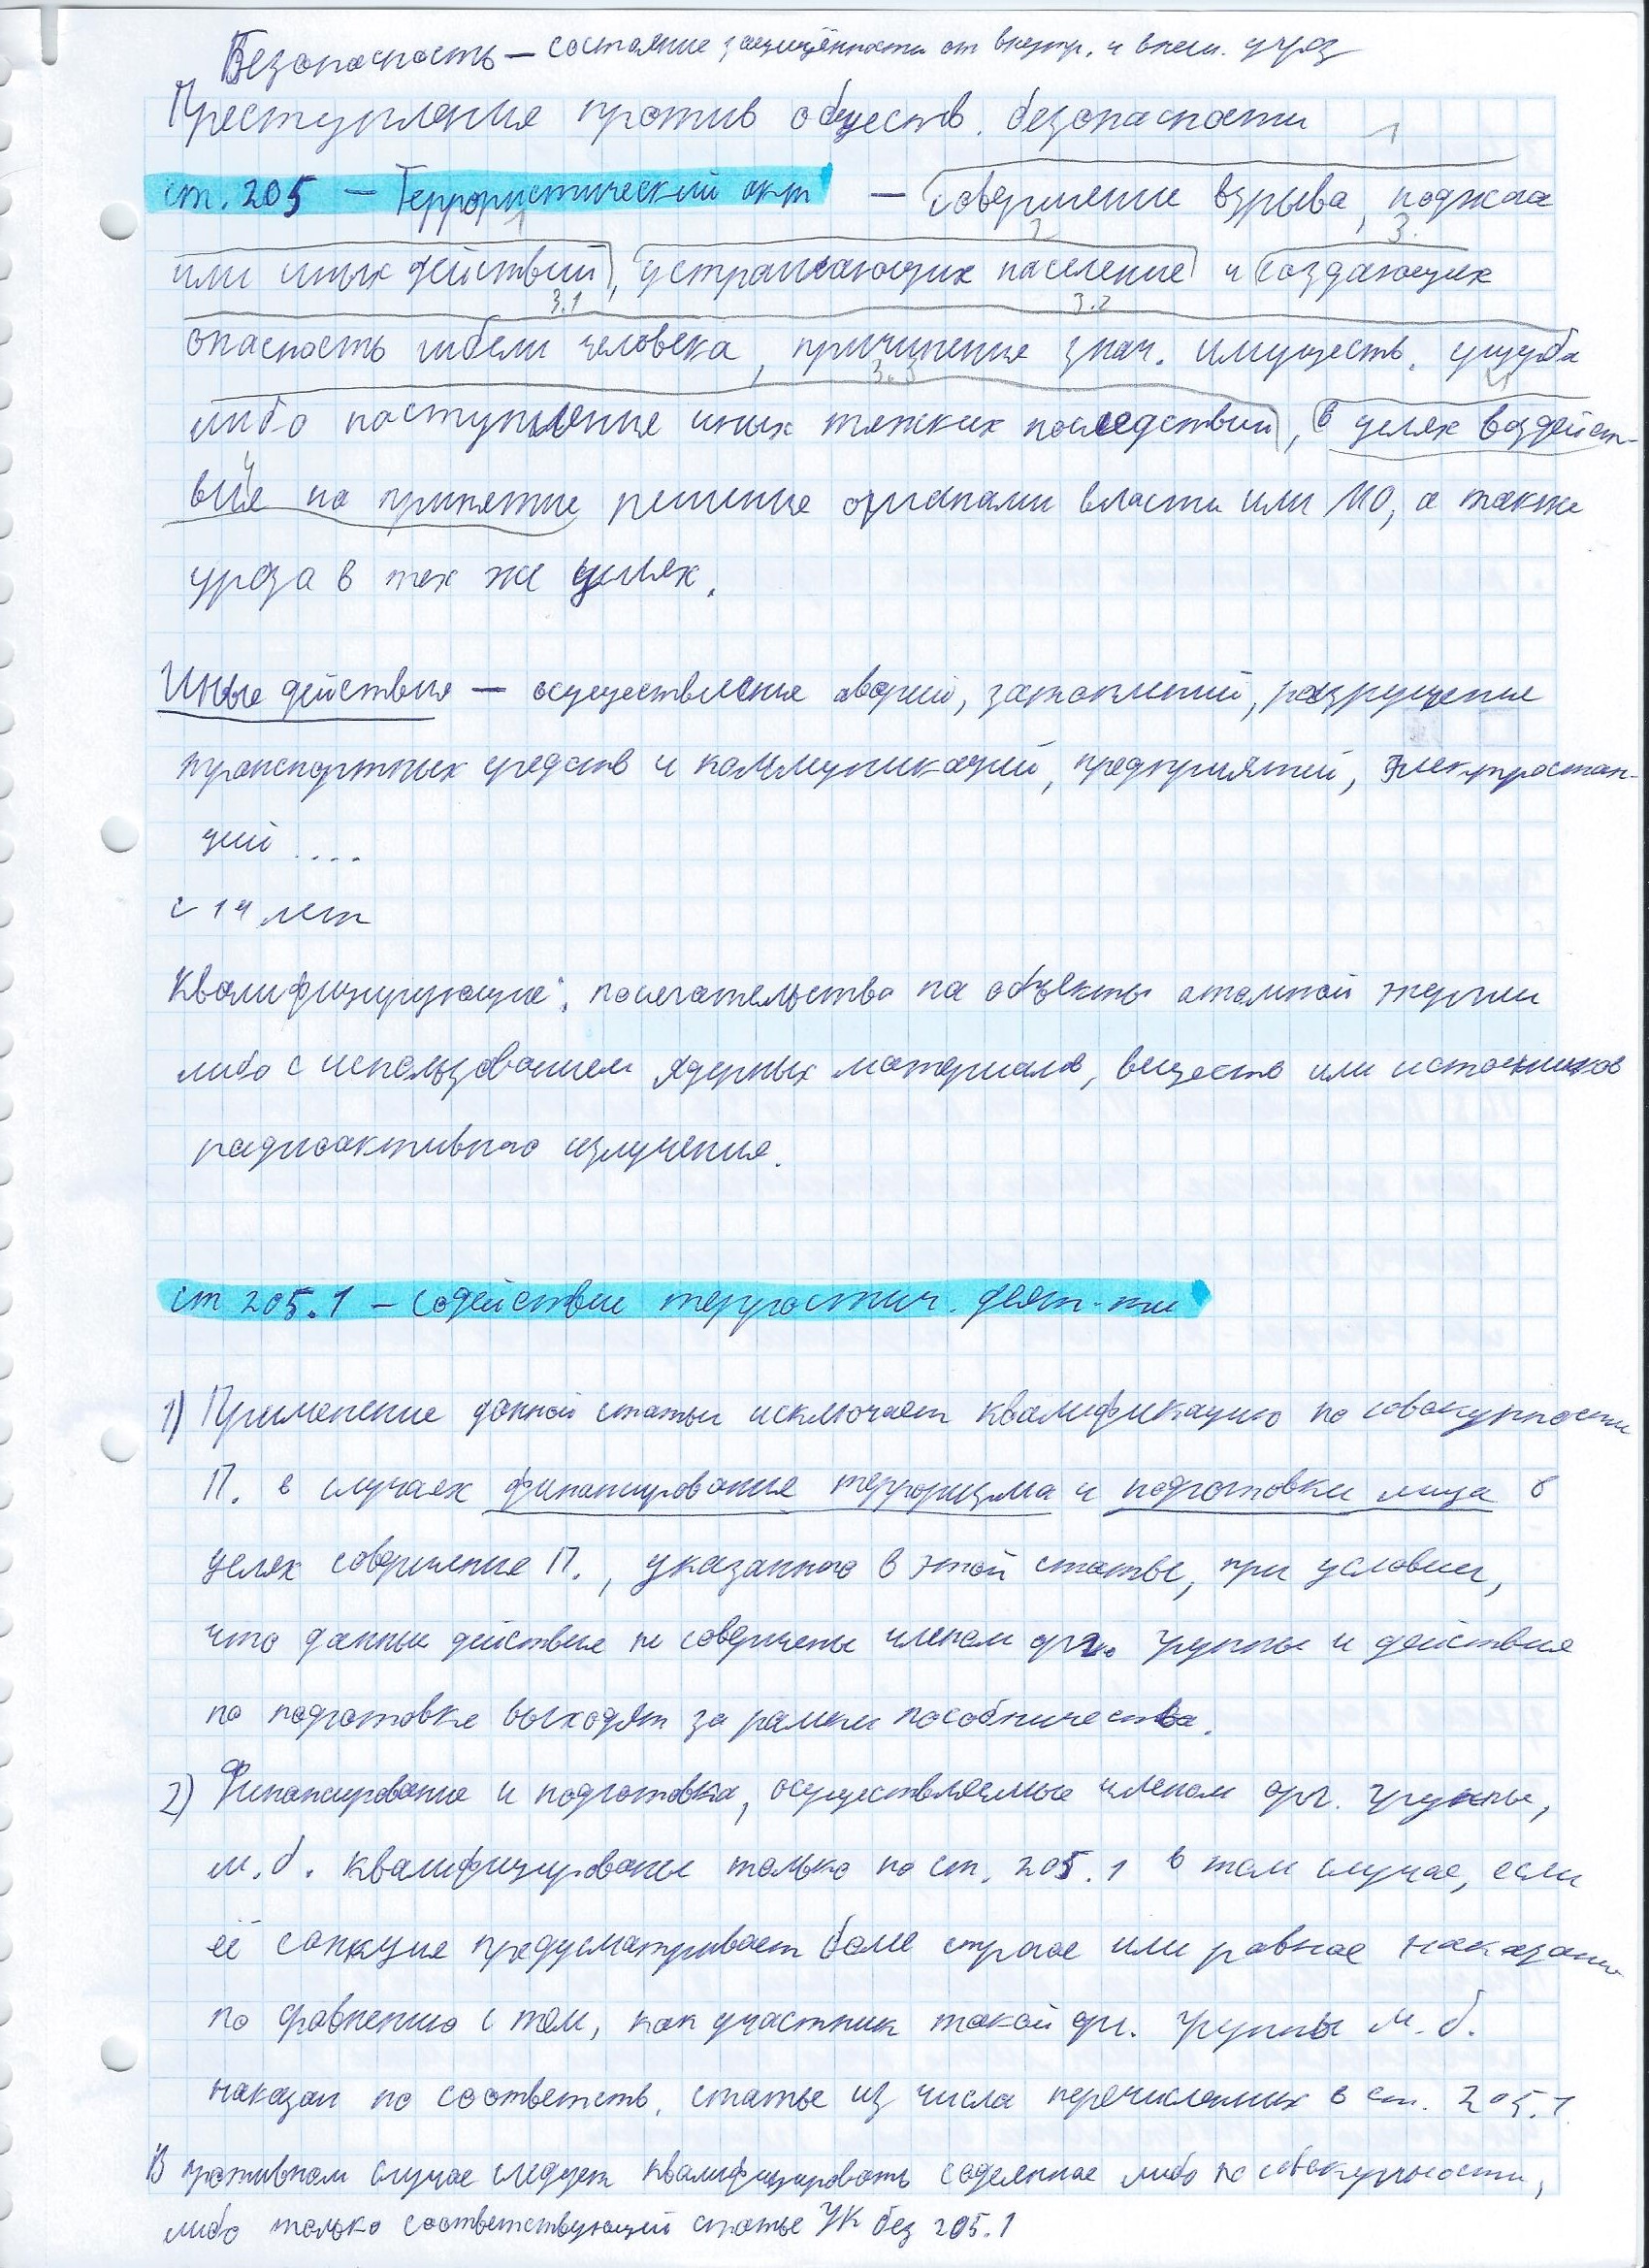 Безопасность – состояние защищённости от внутр. и внеш. угроз
Преступления против обществ. безопасности
1
ст. 205 – Террористический акт – совершение взрыва, поджога
1 2 3.
или иных действий, устрашающих население и создающих
3.1 3.2
опасность гибели человека, причинения знач. имуществ. ущерба
3.3 4
либо наступления иных тяжких последствий, в целях воздейст-
4
вия на принятие решения органами власти или МО, а также
угроза в тех же целях.
Иные действия – осуществление аварий, затоплений, разрушение
транспортных средств и коммуникаций, предприятий, электростан-
ций ....
с 14 лет
Квалифицирующие: посягательства на объекты атомной энергии
либо с использованием ядерных материалов, веществ или источников
радиоактивного излучения.
ст 205.1 – содействие террористич. деят-ти
1) Применение данной статьи исключает квалификацию по совокупности
П. в случаях финансирования терроризма и подготовки лица в
целях совершения П., указанного в этой статье, при условии,
что данные действия не совершены членом орг. группы и действия
по подготовке выходят за рамки пособничества.
2) Финансирование и подготовка, осуществляемые членом орг. группы,
м.б. квалифицированы только по ст. 205.1 в том случае, если
её санкция предусматривает более строгое или равное наказание
по сравнению с тем, как участник такой орг. группы м.б.
наказан по соответств. статье из числа перечисленных в ст. 205.1
В противном случае следует квалифицировать содеянное либо по совокупности,
либо только соответствующей статье УК без 205.1